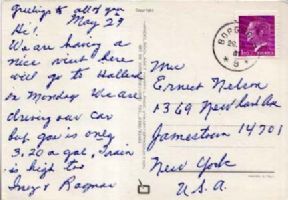 Greetings to all of you
May 29
Hi!
We are having a
nice visit here
will go to Holland
on Monday. We are
driving our car
but gas is only
3.20 a gal, train
is high too
Inez & Ragnar
BORG
Mr
Ernest Nelson
1369 Newland Ave
Jamestown 14701
New York
U.S.A.